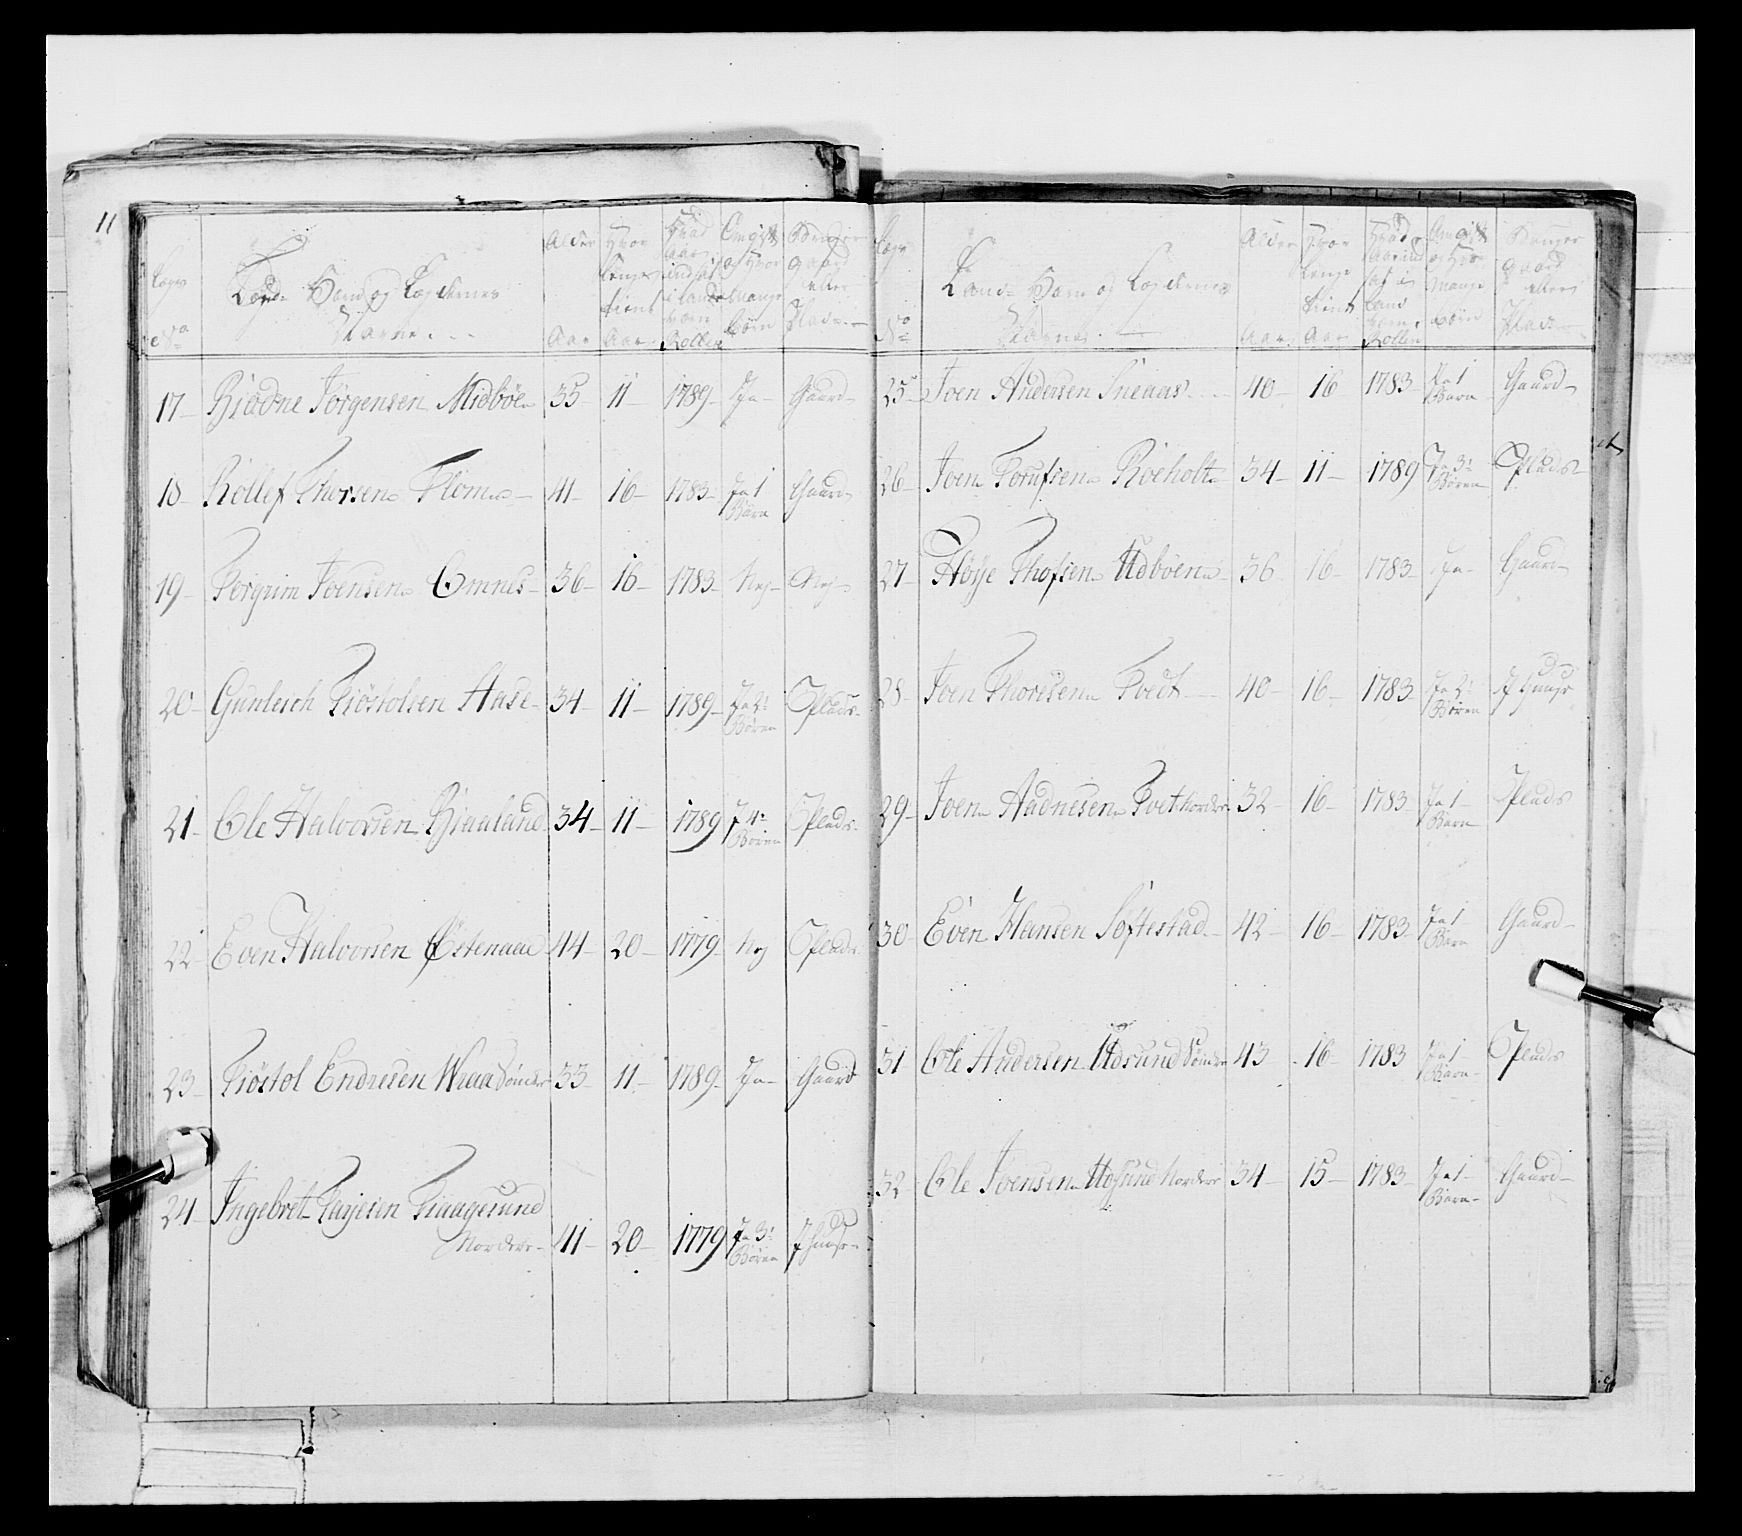 11
Lægs
No
Land Navne.
Alder
Aar
Hvor
længe
tient
Aar
Hvad
Aar
indsat
i Landværn
Rollen
Om gift
og hvor
mange
Børn
Bruger
Gaard
eller
Plads
17 Biodne Jörgensen Midböe 35 11 1789 Ja Gaard
18 Rollef Thorsen Flom 41 16 1783 Ja 1 Barn Gaard
19 Torgrim Joensen Omnes 36 16 1783 Nej Nej
20 Gunleich Tiöstolsen Hase 34 11 1789 Ja 2 Börn Plads
21 Ole Halvorsen Biaaland 34 11 1789 J 4 Börn Plads
22 Even Halvorsen Östenaae 44 20 1779 Nej Plads
23 Tiöstol Endresen Wraa Söndre 33 11 1789 Ja Gaard
24 Ingebret Tarjesen Traagesund
Nordere 41 20 1779 Ja 3 Börn J Huuse
Lægs
No
Land
Alder
Aar
Hvor
længe
tient
Aar
Hvad
Aar ind
sat i
Land
værn
Rollen
Om gift
og hvor
mange
Börn
Bruger
Gaard
eller
Plads
25 Joen Andersen Sneaas 40 16 1783 Ja 1 Barn Gaard
26 Joen Roeholt 34 11 1789 Ja 3 Börn Plads
27 Udböen 36 16 1783 Ja Gaard
28 Joen Thoresen Tvedt 40 16 1783 Ja 2 Börn J Huuse
29 Joen Aadnesen Tvet Nordre 32 16 1783 Ja 1 Barn Plads
30 Even Hansen Softestad 42 16 1783 Ja 1 Barn Gaard
31 Ole Andersen Udsund Söndre 43 16 1783 Ja 1 Barn Plads
32 Ole Joensen Udsund Nordere 34 15 1783 Ja 1 Barn Gaard